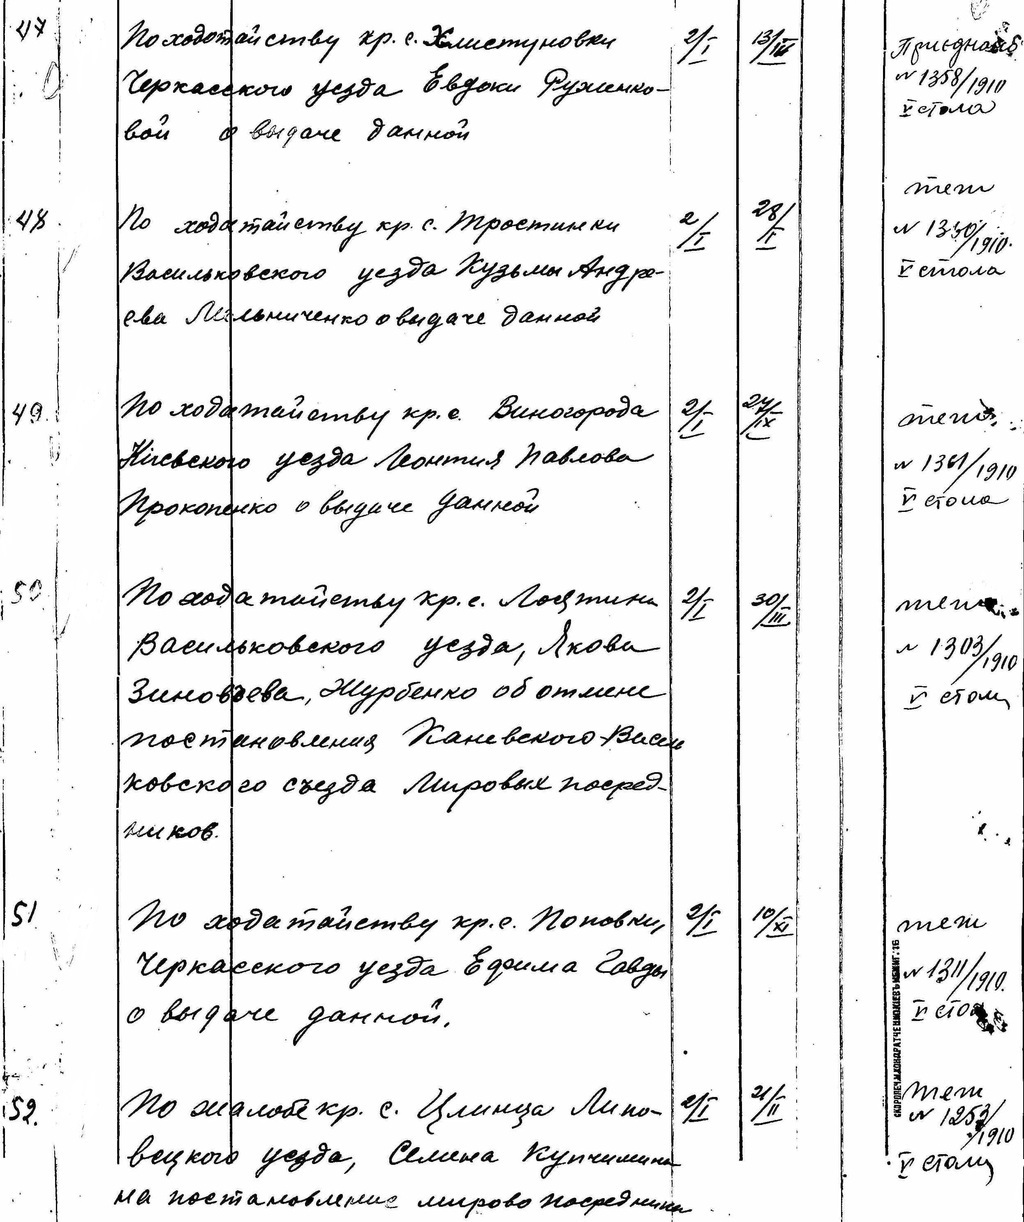 47 По ходатайству кр. с. Хлистуновки 2/I 13/III
Черкасского уезда Евдоки Руженко- № 1358/1910
вой о выдаче данной V стола
тем
48 По ходатайству кр. с. Тростинки 2/I 28/I № 1330/1910.
Васильковского уезда Кузьмы Андре- V стола
ева Мельниченко о выдаче данной
49. По ходатайству кр. с. Виногорода 2/I 24/IX тем
Киевского уезда Леонтия Павлова № 1361/1910
Прокопенко о выдаче данной V стола
50 По ходатайству кр. с. Лосятина 2/I 30/III тем
Васильковского уезда, Якова № 1303/1910
Зиновьева, Журбенко об отмене V стола
постановления Каневского-Василь
ковского съезда Мировых посред-
ников.
51 По ходатайству кр. с. Поповки, 2/I 10/XI тем
Черкасского уезда Ефима Гавды № 1311/1910.
о выдаче данной. V стола
52. По жалобе кр. с. Цлинца Липо- 2/I 21/II тем
№ 1253/1910
вецкого уезда, Семена V стола
на постановление мирово посредника